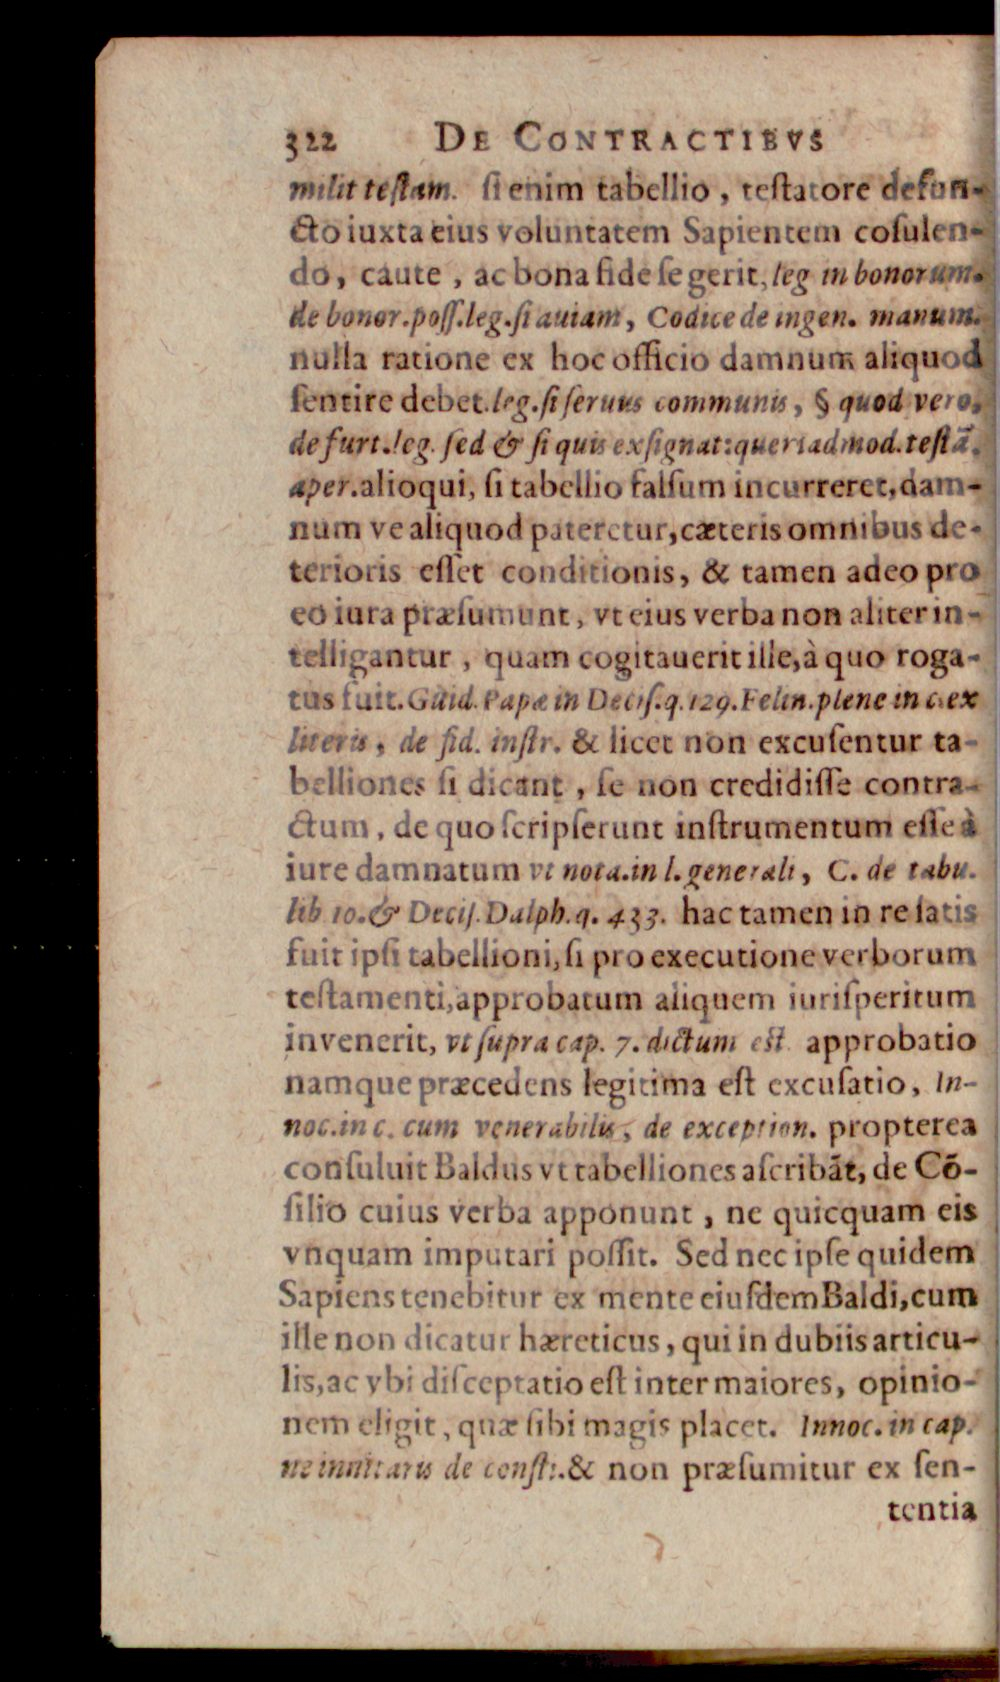 322 DE CONTRACTIBVS
milit testam. si enim tabellio, testatore defun-
cto iuxta eius voluntatem Sapientem cosulen-
do, caute, ac bona fide se gerit, leg in bonorum.
de bonor.poss.leg.si auiam, Codice de ingen. manum.
nulla ratione ex hoc officio damnum aliquod
sentire debet.leg.si seruus communis, § quod vero,
de furt.leg. sed & si quis ex signat:queriadmod.testā.
aper.alioqui, si tabellio falsum incurreret, dam-
num ve aliquod pateretur, cæteris omnibus de-
terioris esset conditionis, & tamen adeo pro
eo iura præsumunt, vt eius verba non aliter in-
telligantur, quam cogitauerit ille, à quo roga-
tus fuit. Guid. Papæ in Decis.q.129.Felin.plene in c.ex
literis, de fid. instr. & licet non excusentur ta-
belliones si dicant, se non credidisse contra-
ctum, de quo scripserunt instrumentum esse à
iure damnatum vt nota.in l.generali, C. de tabu.
lib 10.& Decis.Dalph.q. 433. hac tamen in re satis
fuit ipsi tabellioni, si pro executione verborum
testamenti, approbatum aliquem iurisperitum
invenerit, vt supra cap. 7. dictum est approbatio
namque præcedens legitima est excusatio, In-
noc.in c. cum venerabilis, de exception. propterea
consuluit Baldus vt tabelliones ascribāt, de Cō-
silio cuius verba apponunt, ne quicquam eis
vnquam imputari possit. Sed nec ipse quidem
Sapiens tenebitur ex mente eiusdem Baldi, cum
ille non dicatur hæreticus, qui in dubiis articu-
lis, ac vbi disceptatio est inter maiores, opinio-
nem eligit, quæ sibi magis placet. Innoc. in cap.
ne innitaris de const:.& non præsumitur ex sen-
tentia